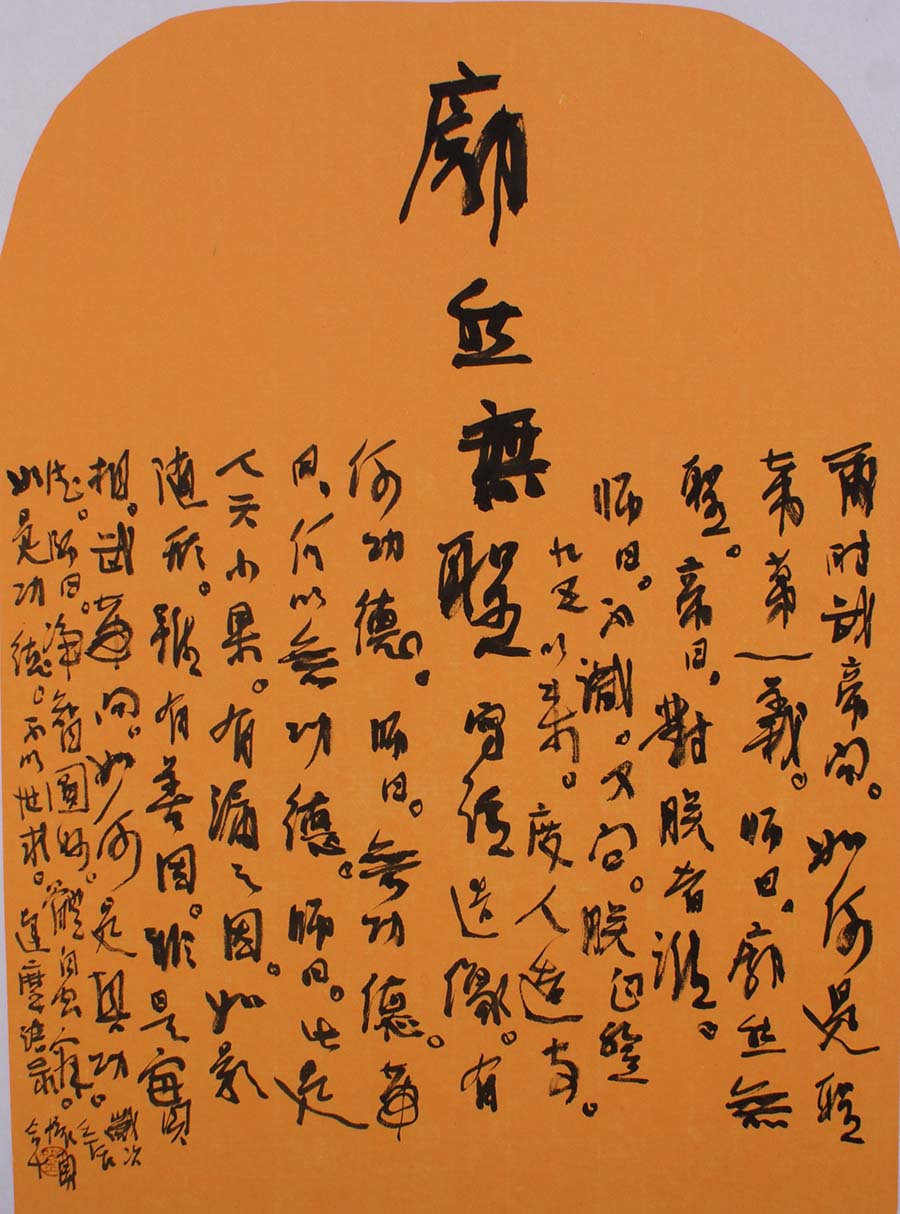 廓然無聖
爾時武帝問。如何是聖
帝第一義。師曰、廓然無
聖。帝曰、對朕者誰。
師曰。不識。又問。朕自登
九五以来。度人造寺。
寫經造像。有
何功德。師曰。無功德。帝
曰、何以無功德。師曰。此是
人天小果。有漏之因。如影
隨形。雖有善因。非是實
相。武帝問。如何是真功。
德。師曰。淨智圓妙。體自空寂。
如是功德。不以世求。達摩語录。
歲次